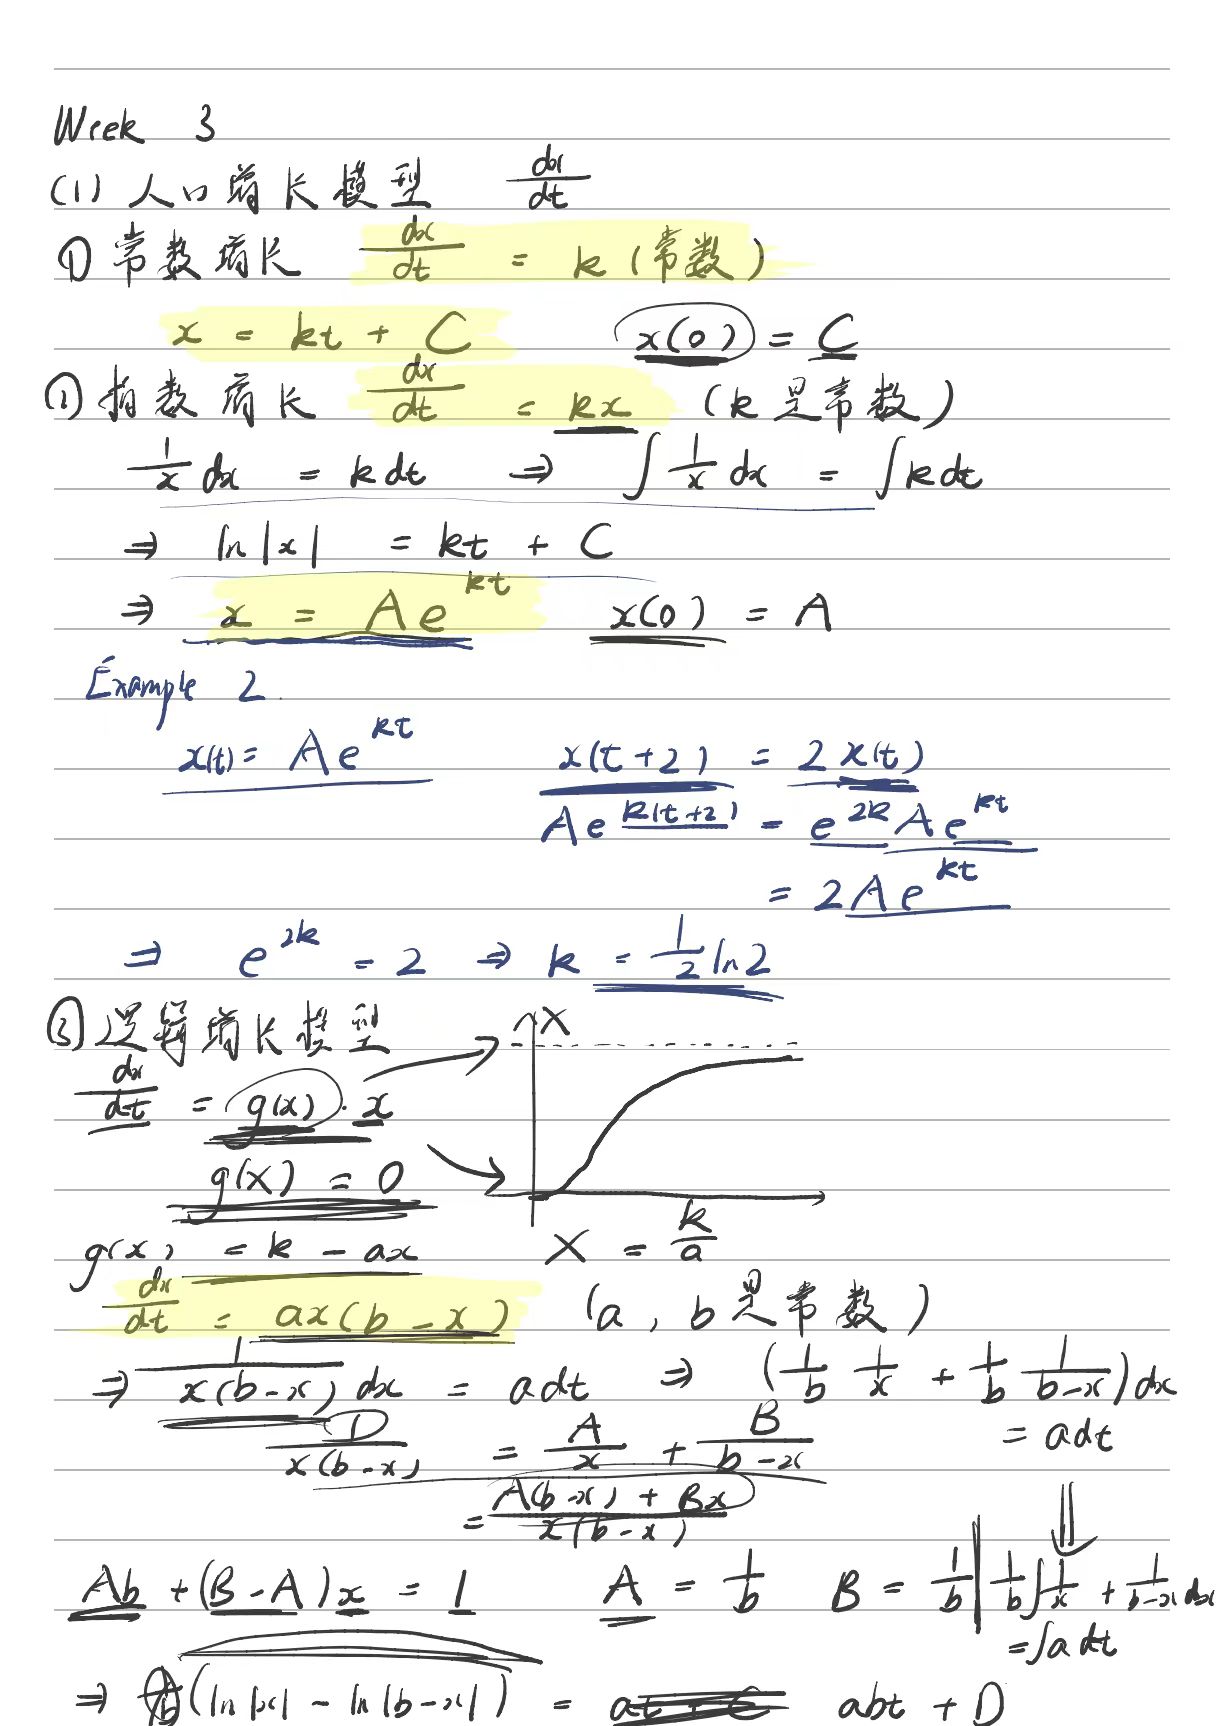 Week 3
(1) 人口增长模型 dx/dt
① 常数增长 dx/dt = k (常数)
x = kt + C x(0) = C
① 指数增长 dx/dt = kx (k是常数)
1/x dx = k dt ⇒ ∫ 1/x dx = ∫ k dt
⇒ ln|x| = kt + C
⇒ x = Ae^{kt} x(0) = A
Example 2.
x(t) = Ae^{kt} x(t+2) = 2x(t)
Ae^{k(t+2)} = e^{2k} Ae^{kt}
= 2Ae^{kt}
⇒ e^{2k} = 2 ⇒ k = 1/2 ln2
③ 逻辑增长模型 X
dx/dt = g(x) · x
g(X) = 0
g(x) = k - ax X = k/a
dx/dt = ax(b - x) (a, b是常数)
⇒ 1/(x(b-x)) dx = a dt ⇒ (1/b 1/x + 1/b 1/(b-x)) dx
= a dt
D/(x(b-x)) = A/x + B/(b-x)
= (A(b-x) + Bx)/(x(b-x))
Ab + (B-A)x = 1 A = 1/b B = 1/b | 1/b ∫ 1/x + 1/(b-x) dx
= ∫ a dt
⇒ (ln|x| - ln|b-x|) = at + C abt + D